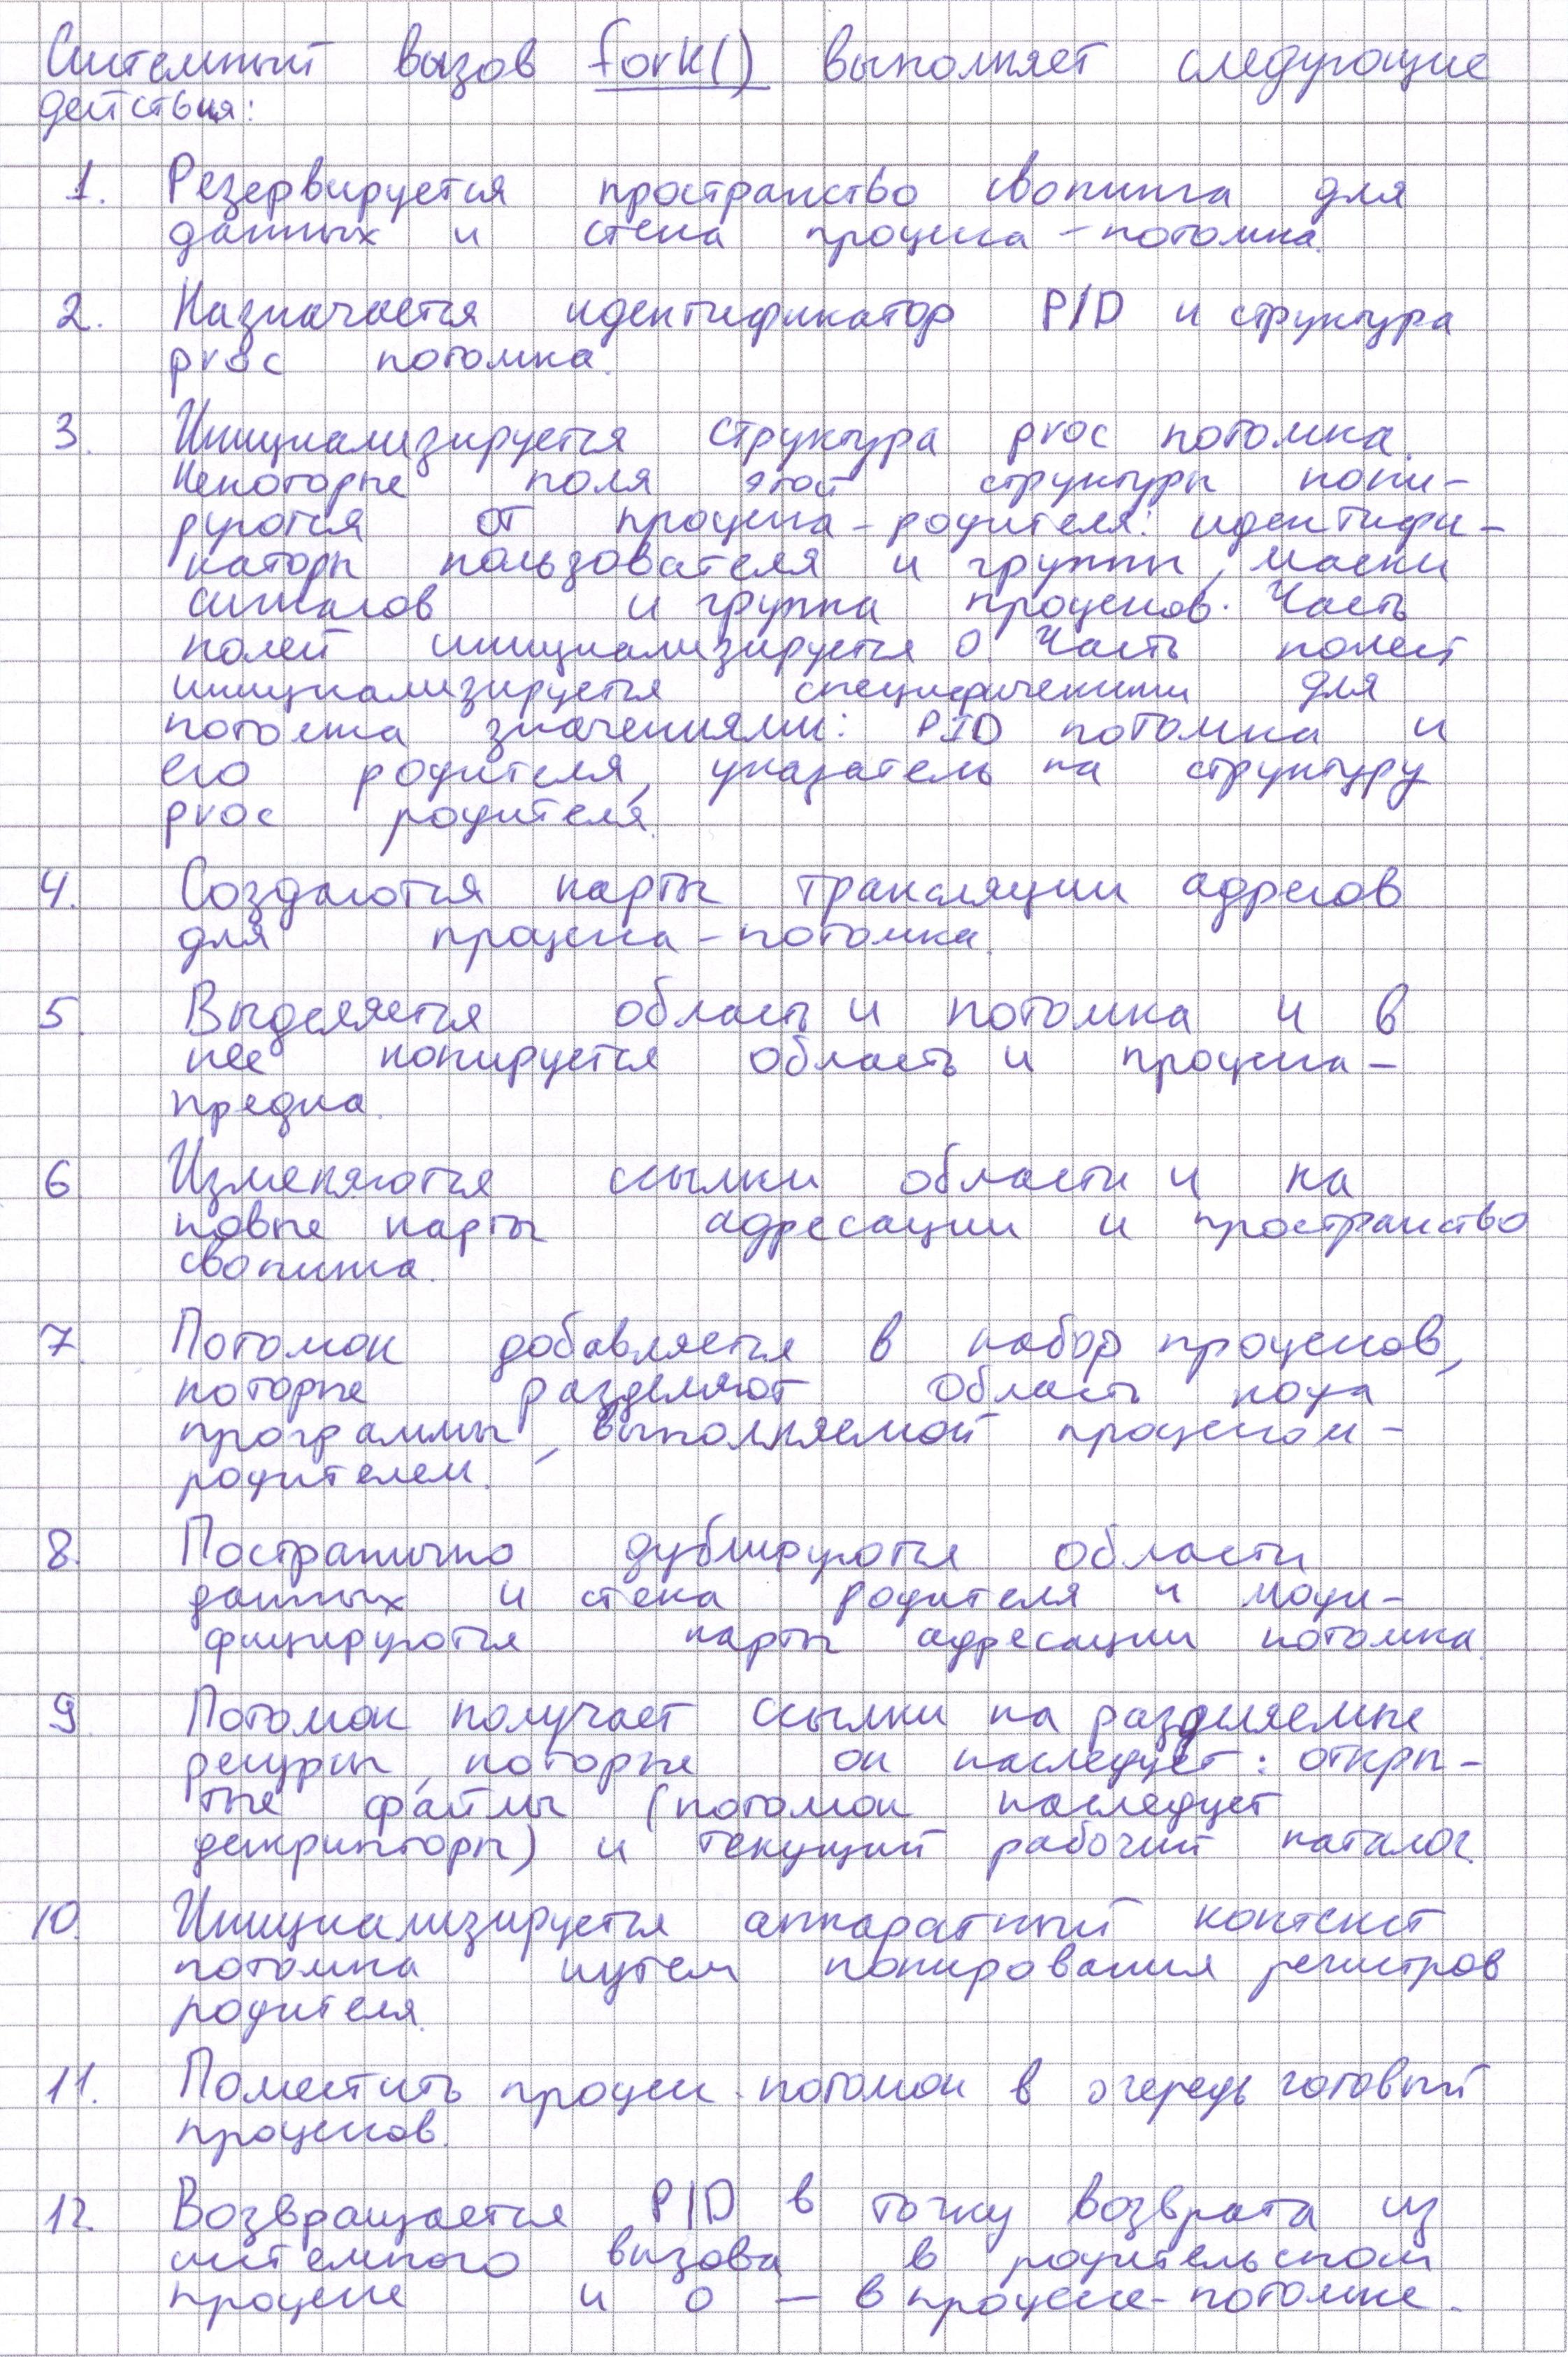 Системный вызов fork() выполняет следующие
действия:
1. Резервируется пространство свопинга для
данных и стека процесса-потомка.
2. Назначается идентификатор PID и структура
proc потомка.
3. Инициализируется структура proc потомка.
Некоторые поля этой структуры копи-
руются от процесса-родителя: идентифи-
каторы пользователя и группы, маски
сигналов и группа процессов. Часть
полей инициализируется 0. Часть полей
инициализируется специфическими для
потомка значениями: PID потомка и
его родителя, указатель на структуру
proc родителя.
4. Создаются карты трансляции адресов
для процесса-потомка.
5. Выделяется область u потомка и в
нее копируется область u процесса-
предка.
6. Изменяются ссылки области u на
новые карты адресации и пространство
свопинга.
7. Потомок добавляется в набор процессов,
которые разделяют область кода
программы, выполняемой процессом-
родителем.
8. Постранично дублируются области
данных и стека родителя и моди-
фицируются карты адресации потомка.
9. Потомок получает ссылки на разделяемые
ресурсы, которые он наследует: откры-
тые файлы (потомок наследует
дескрипторы) и текущий рабочий каталог.
10. Инициализируется аппаратный контекст
потомка путем копирования регистров
родителя.
11. Поместить процесс-потомок в очередь готовый
процессов.
12. Возвращается PID в точку возврата из
системного вызова в родительском
процессе и 0 — в процессе-потомке.